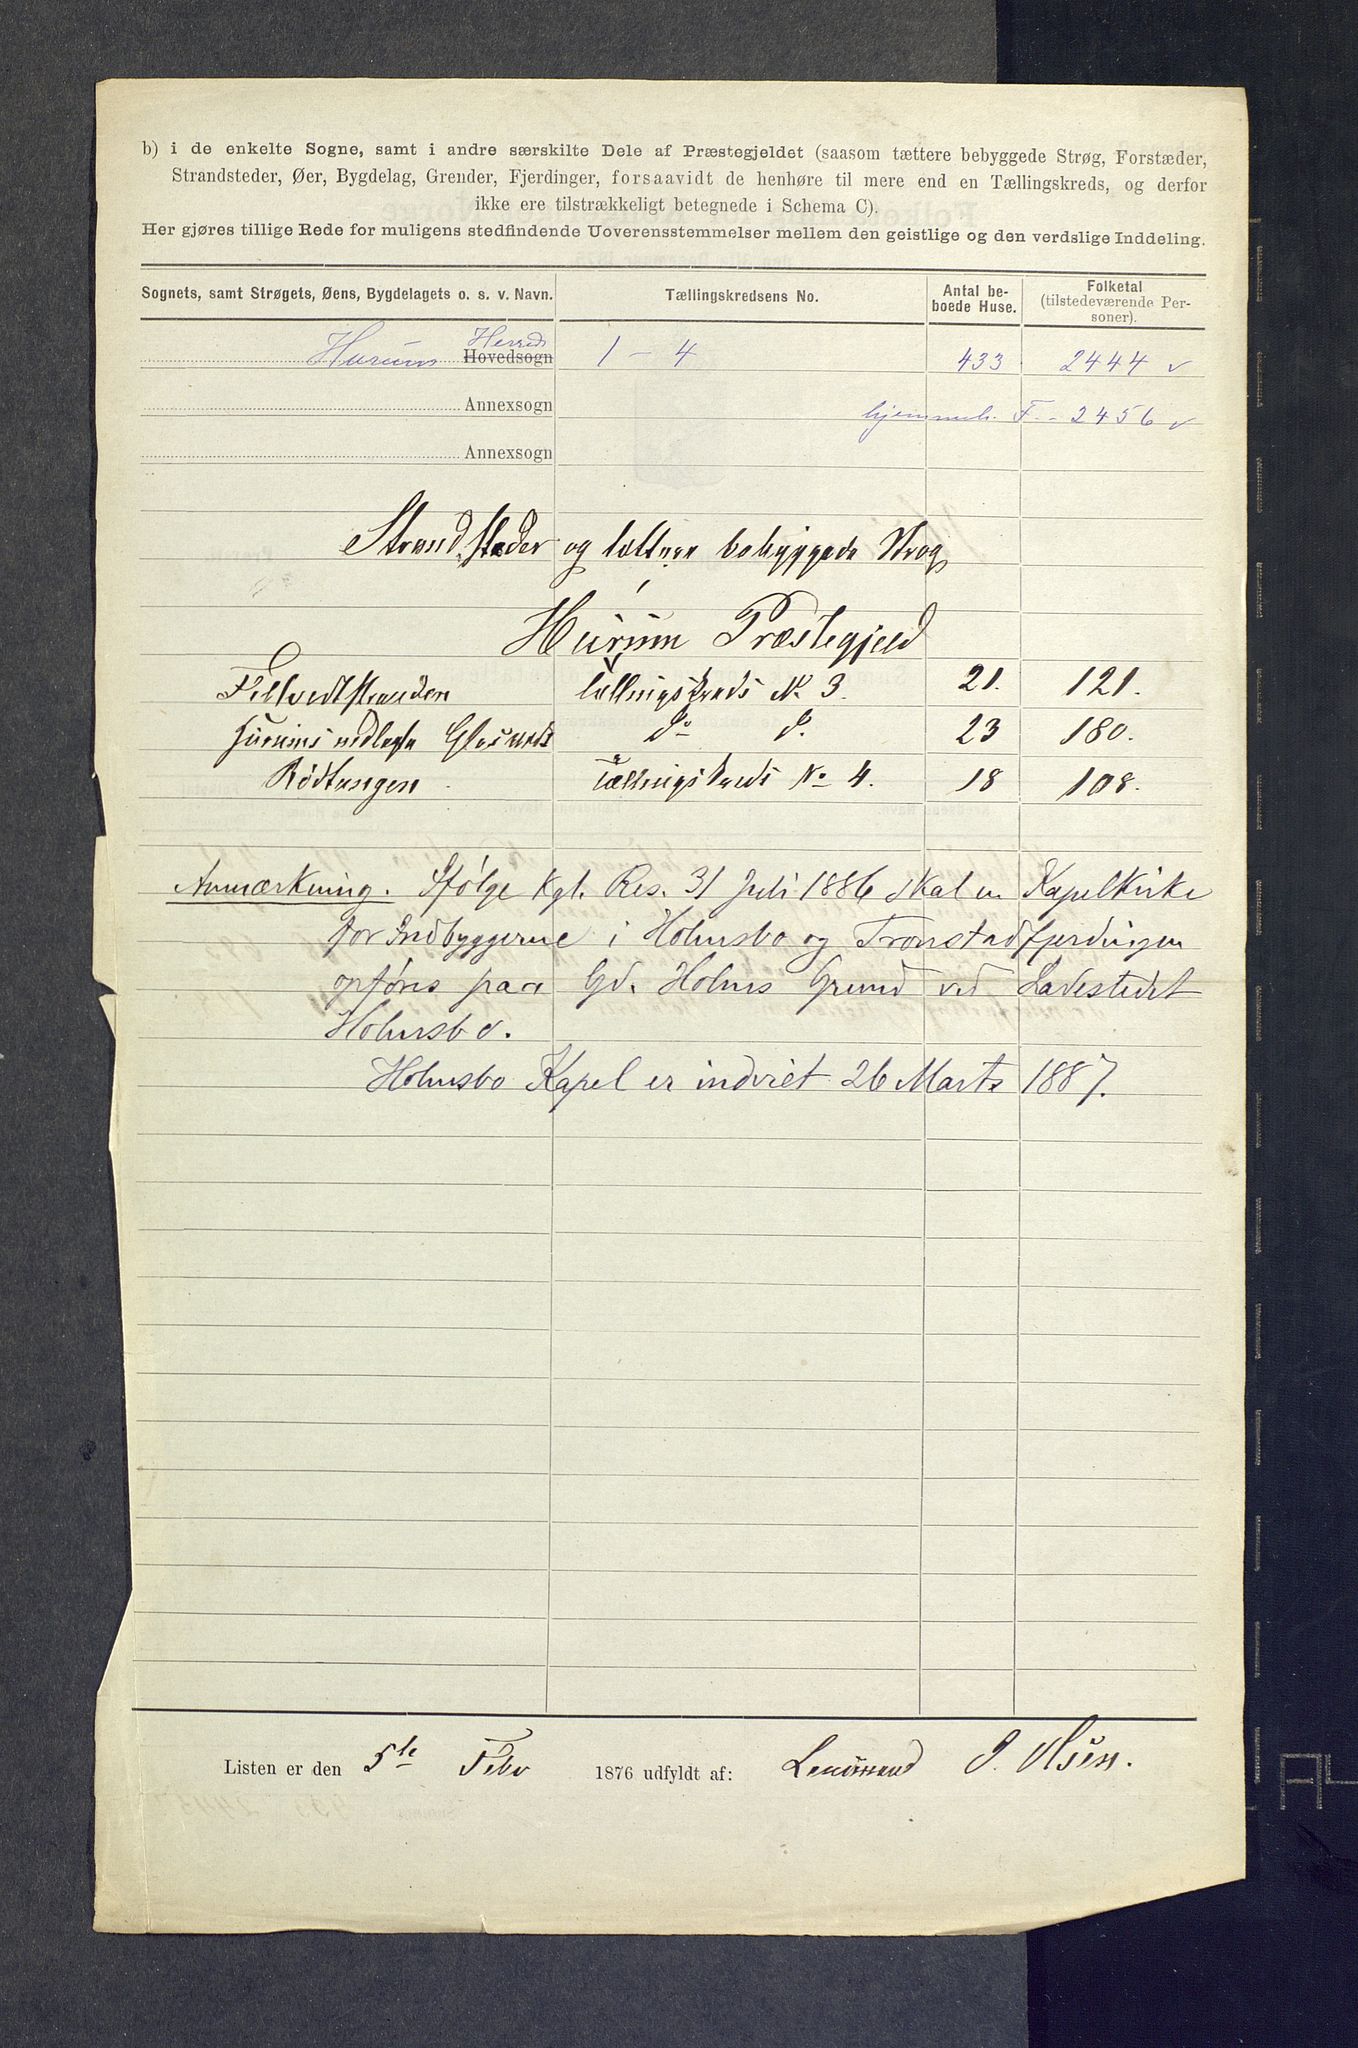 b) i de enkelte Sogne, samt i andre særskilte Dele af Præstegjeldet (saasom tættere bebyggede Strøg, Forstæder,
Strandsteder, Øer, Bygdelag, Grender, Fjerdinger, forsaavidt de henhøre til mere end en Tællingskreds, og derfor
ikke ere tilstrækkeligt betegnede i Schema C).
Her gjøres tillige Rede for muligens stedfindende Uoverensstemmelser mellem den geistlige og den verdslige Inddeling.
Sognets, samt Strøgets, Øens, Bygdelagets o. s. v. Navn. Tællingskredsens No. Antal beboede Huse. Folketal (tilstedeværende Personer).
Hurums Herred Hovedsogn 1 - 4 433 2444 v
Annexsogn hjemmeh. F. - 2456 v
Annexsogn
Strandsteder og tættere bebyggede Strøg
i
Hurum Præstegjeld
Filtvedtstranden Tællingskreds No 3. 21. 121.
Hurums nedlagte Glasværk do do. 23 180.
Rödtangen Tællingskreds No 4. 18 108.
Anmærkning. Ifølge Kgl. Res. 31 Juli 1886 skal en Kapelkirke
for Indbyggerne i Holmsbo og Tronstadfjerdingen
opføres paa Gd. Holms Grund ved Ladestedet
Holmsbo.
Holmsbo Kapel er indviet 26 Marts 1887.
Listen er den 5te Febr 1876 udfyldt af: Lensmand J. Olsen.